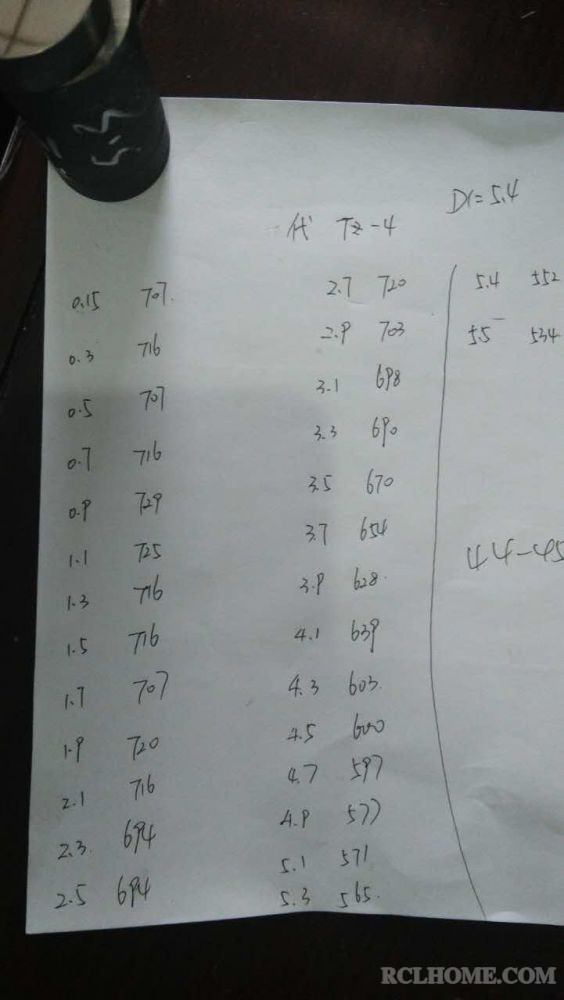 5.5
D1=5.4
代 Tz-4
0.15 707.
0.3 716
0.5 707
0.7 716
0.9 729
1.1 725
1.3 716
1.5 716
1.7 707
1.9 720
2.1 716
2.3. 694
2.5 694
2.7 720
2.9 703
3.1 698
3.3 690
3.5 670
3.7 654
3.9 628.
4.1 639
4.3 603.
4.5 600
4.7 597
4.9 577
5.1 571
5.3 565.
5.4 552
5.5 534
44-45
RCLHOME.COM